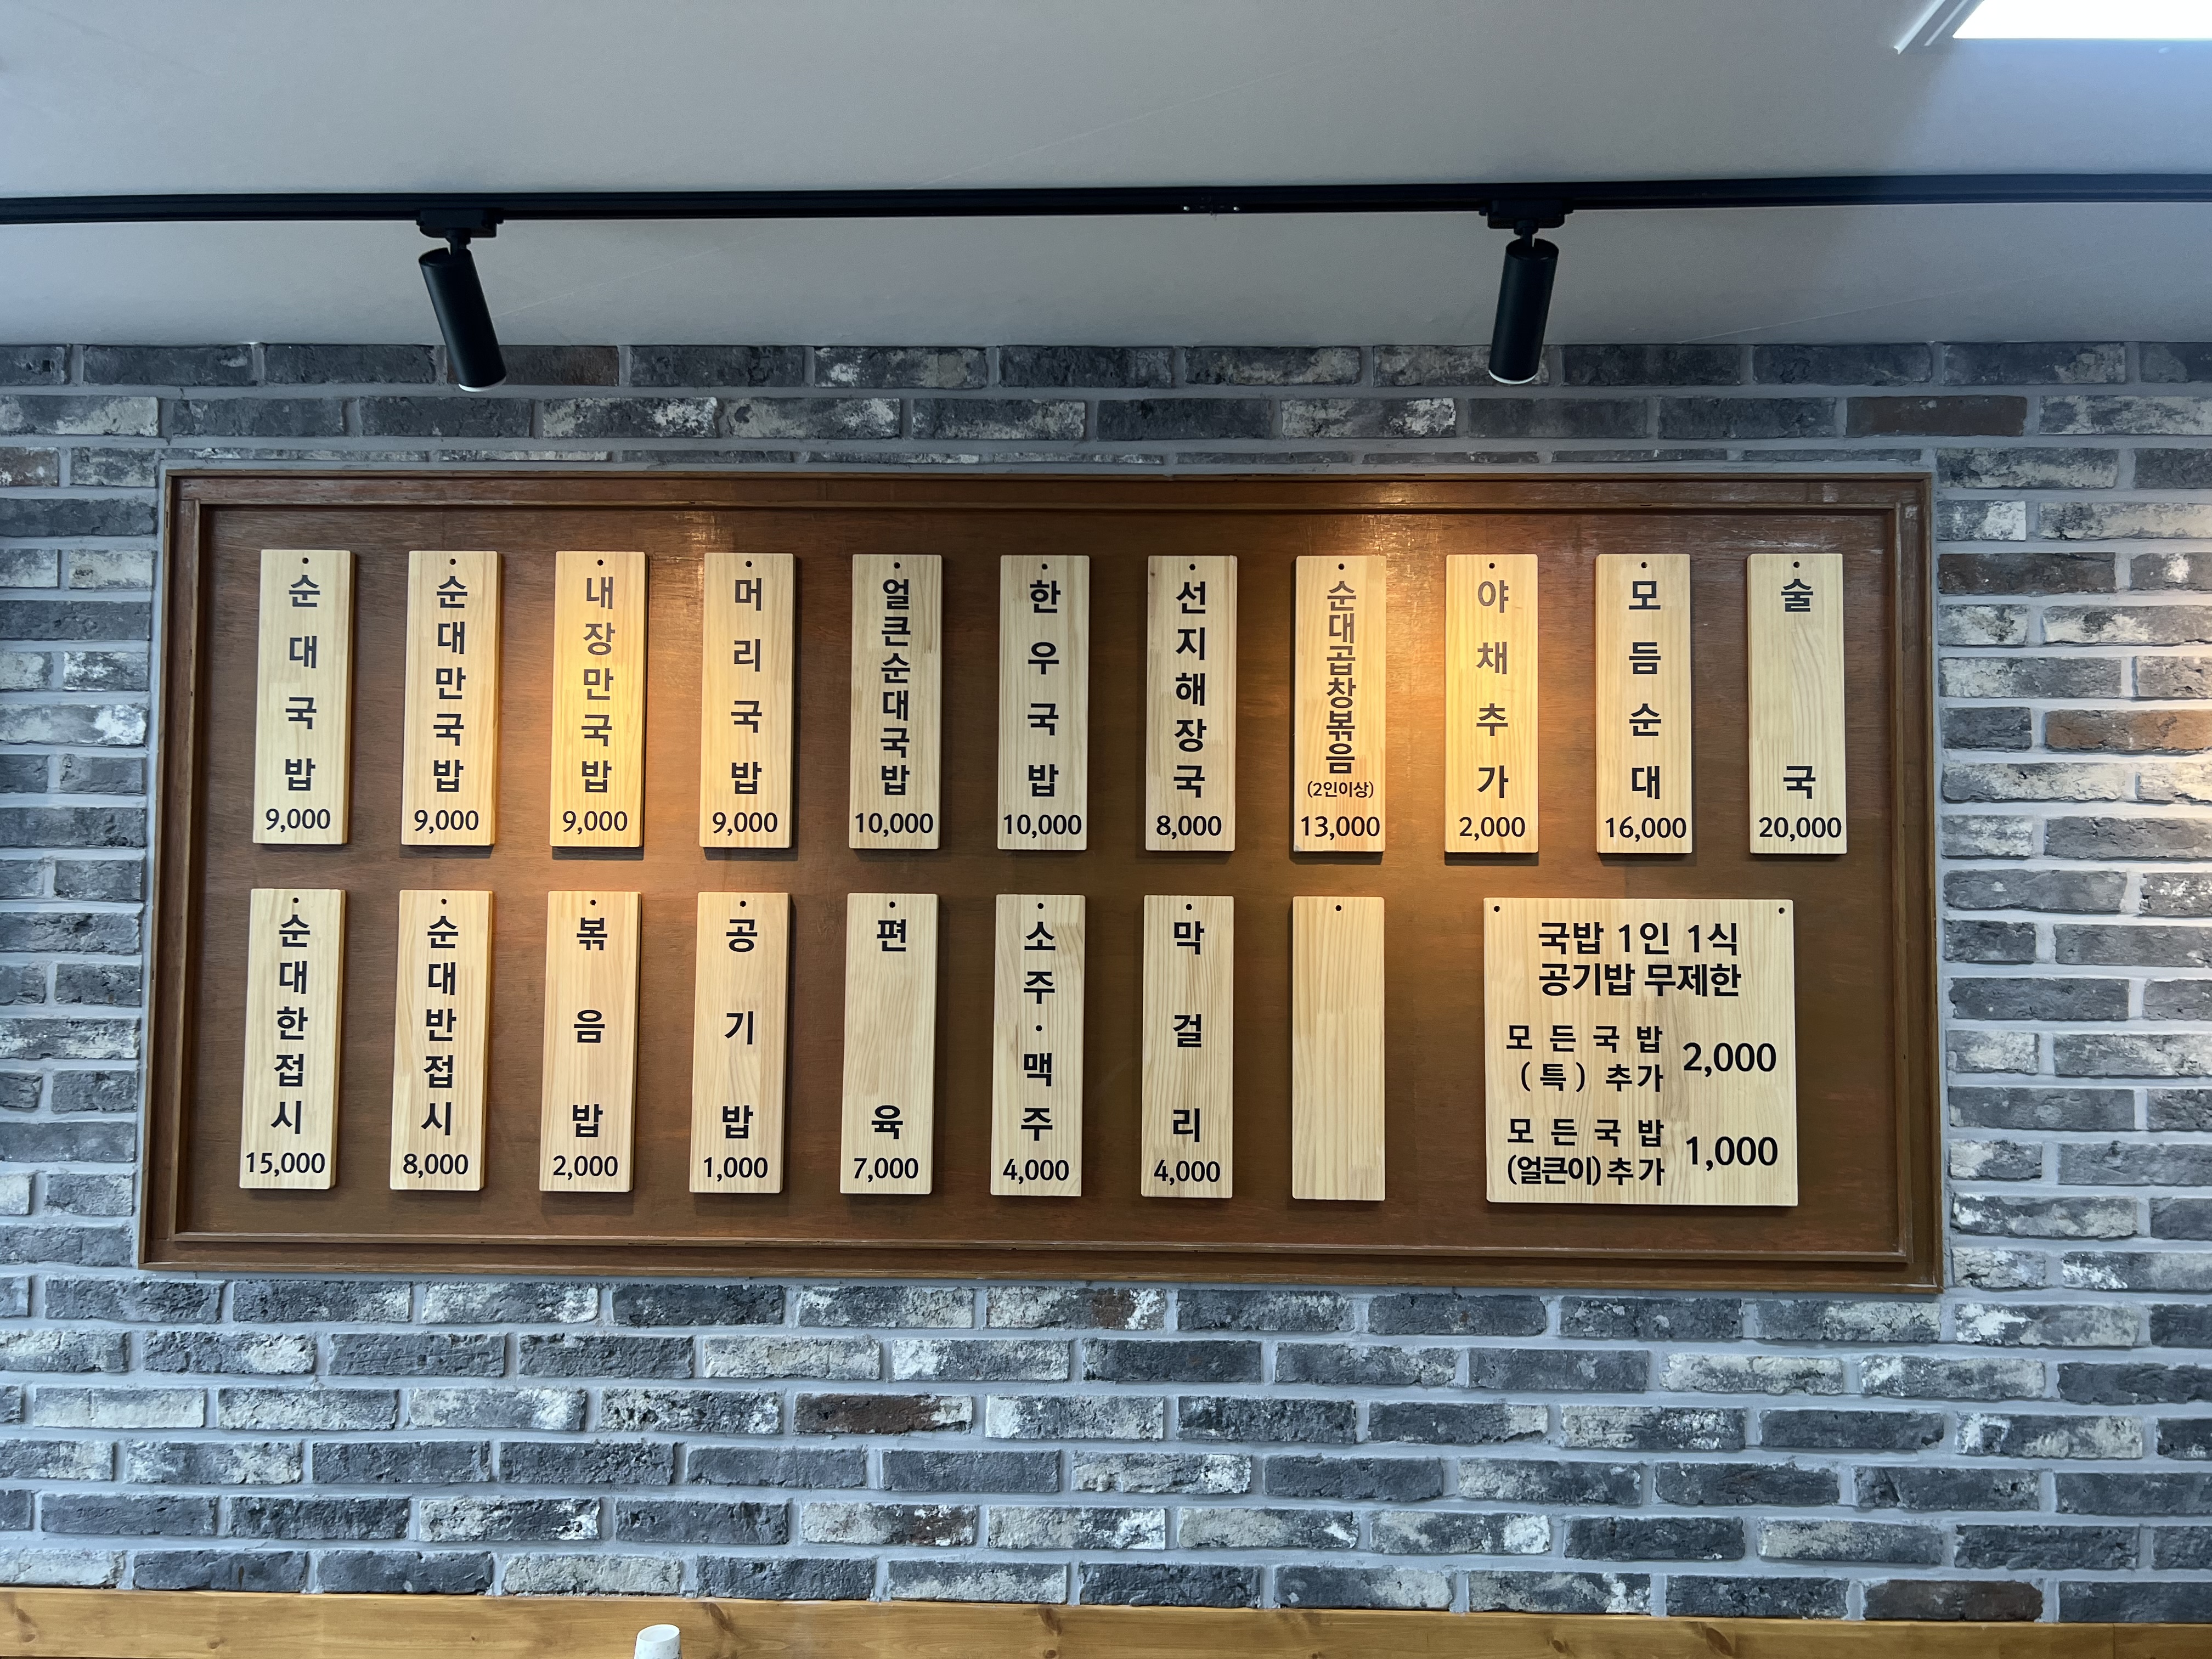 순대국밥
9,000
순대만국밥
9,000
내장만국밥
9,000
머리국밥
9,000
얼큰순대국밥
10,000
한우국밥
10,000
선지해장국
8,000
순대곱창볶음
(2인이상)
13,000
야채추가
2,000
모듬순대
16,000
술국
20,000
순대한접시
15,000
순대반접시
8,000
볶음밥
2,000
공기밥
1,000
편육
7,000
소주·맥주
4,000
막걸리
4,000
국밥 1인 1식
공기밥 무제한
모든국밥
(특) 추가 2,000
모든국밥
(얼큰이)추가 1,000